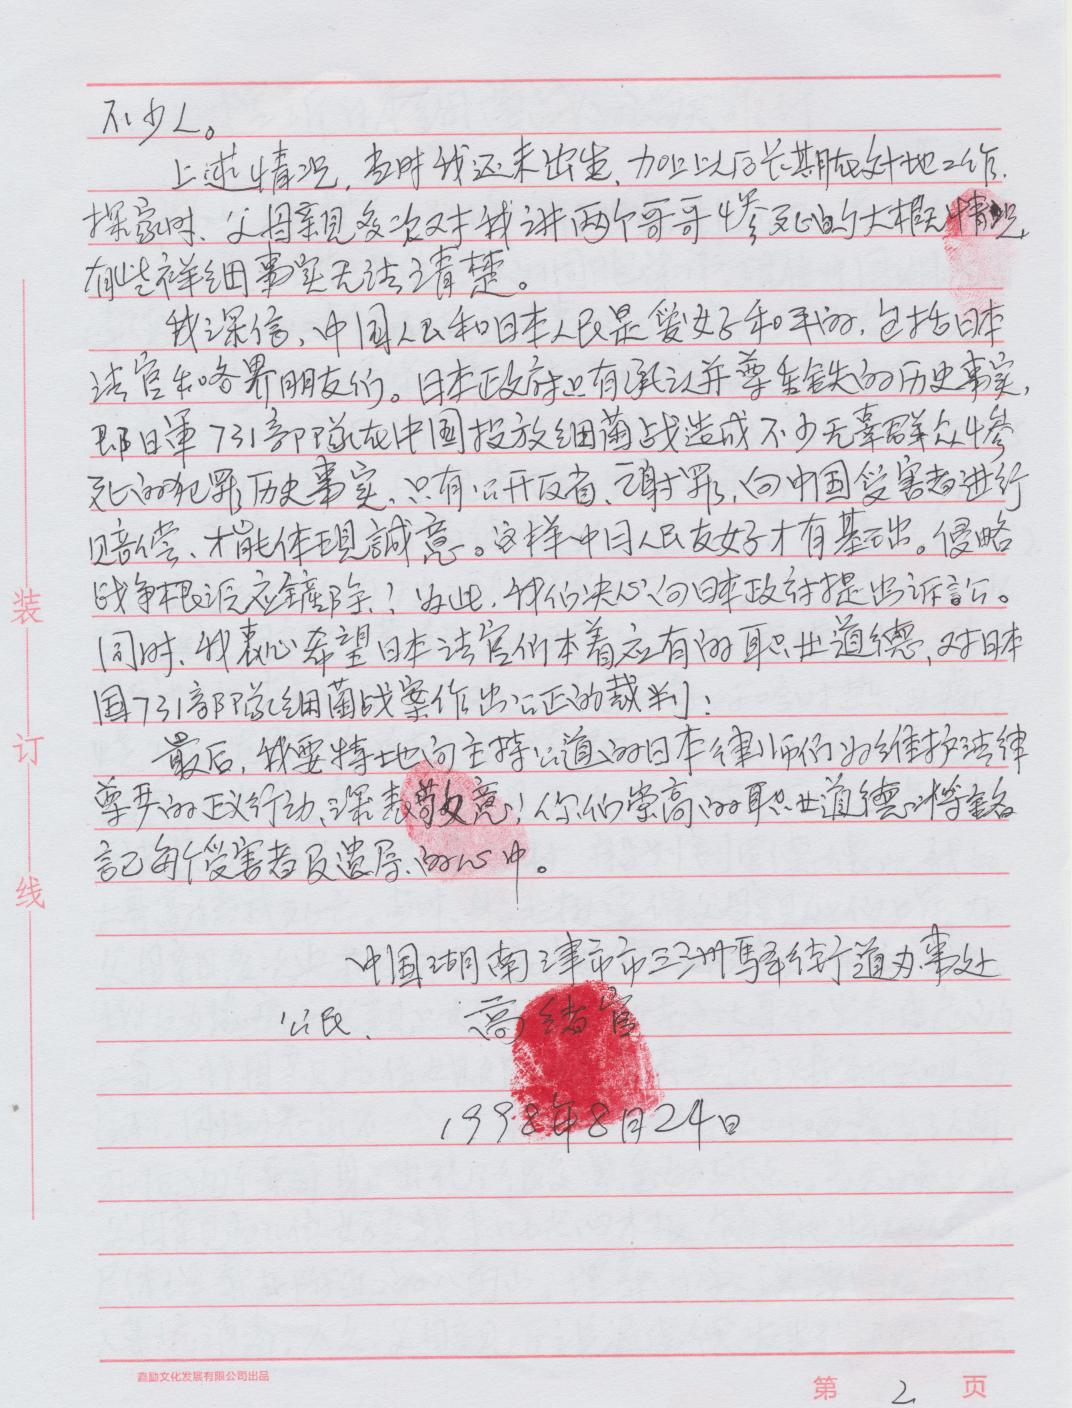 不少人。
上述情况，当时我还未出生，加上以后长期在外地工作，
探家时、父母亲多次对我讲两个哥哥惨死的大概情况，
有些详细事实无法说清楚。
我深信，中国人民和日本人民是爱好和平的，包括日本
法官和各界朋友们。日本政府只有承认并尊重铁的历史事实，
即日軍731部隊在中国投放细菌战造成不少无辜群众惨
死的犯罪历史事实，只有公开反省、谢罪，向中国受害者进行
赔偿、才能体现誠意。这样中日人民友好才有基础。侵略
战争根源应铲除！为此，我们决心向日本政府提出诉訟。
同时、我衷心希望日本法官们本着应有的职业道德，对日本
国731部隊细菌战案作出公正的裁判；
最后，我要特地向主持公道的日本律师们为维护法律
尊严的正义行动、深表敬意！你们崇高的职业道德将銘
記每个受害者及遗属的心中。
中国湖南津市市三洲驿街道办事处
公民、 高绪官
1998年8月24日
装
订
线
嘉励文化发展有限公司出品
第 2 页